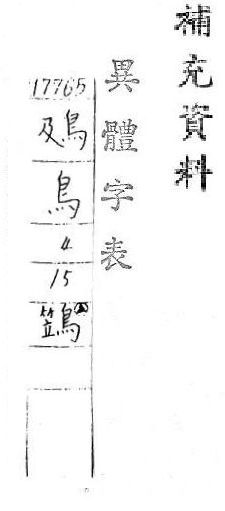 補充資料
異體字表
17765
鳥
4
15